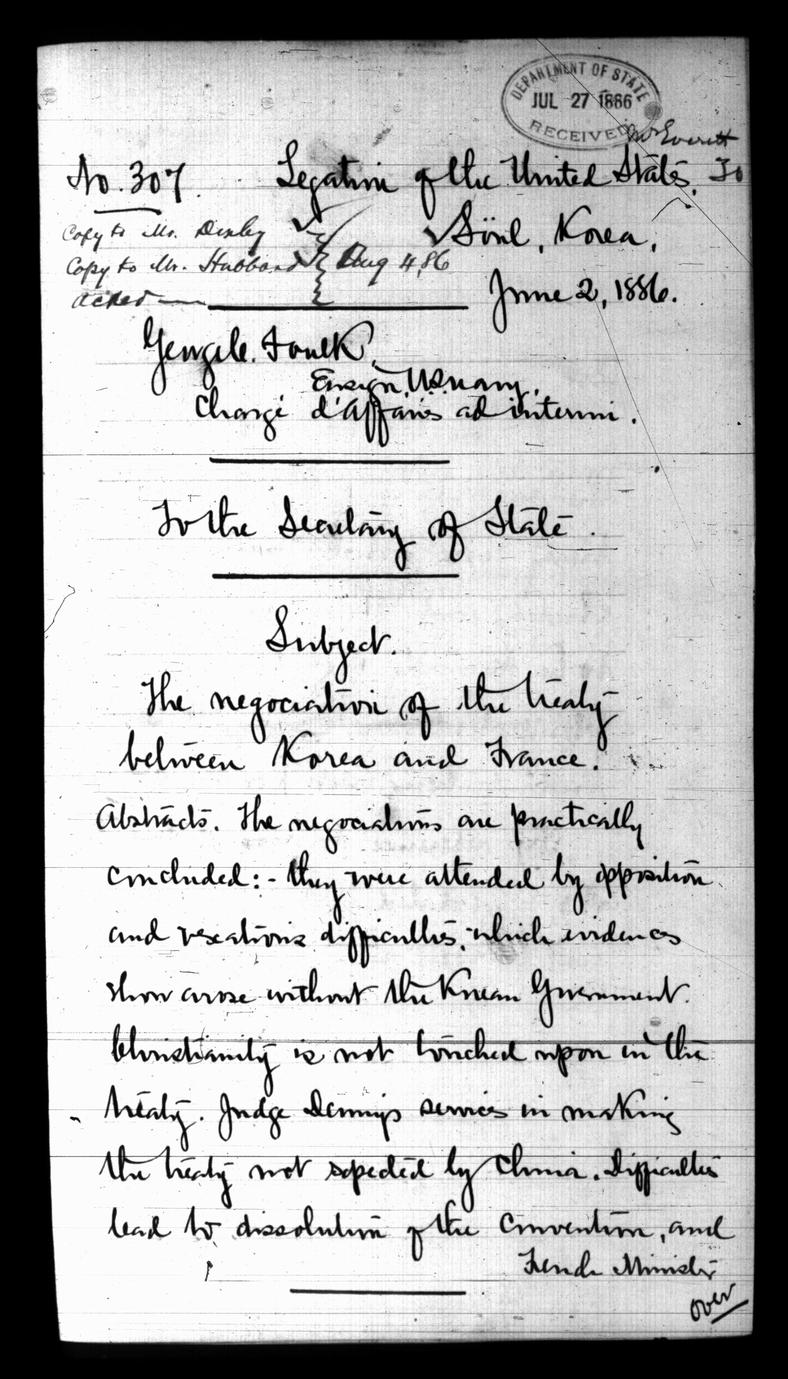 DEPARTMENT OF STATE
JUL 27 1886
RECEIVED
Mr Everett
No. 307. Legation of the United States,
Söul, Korea,
Copy to Mr. Denby
Copy to Mr. Hubbard Aug 4, 86
acked
June 2, 1886.
George C. Foulk,
Ensign, U.S. Navy,
Chargé d'Affaires ad interim.
To the Secretary of State.
Subject.
The negociation of the treaty
between Korea and France.
Abstracts. The negociations are practically
concluded:- they were attended by opposition
and vexatious difficulties, which evidences
show arose without the Korean Government.
Christianity is not touched upon in the
treaty. Judge Denny's services in making
the treaty not by China. Difficulties
lead to dissolution of the Convention, and
French Minister
over